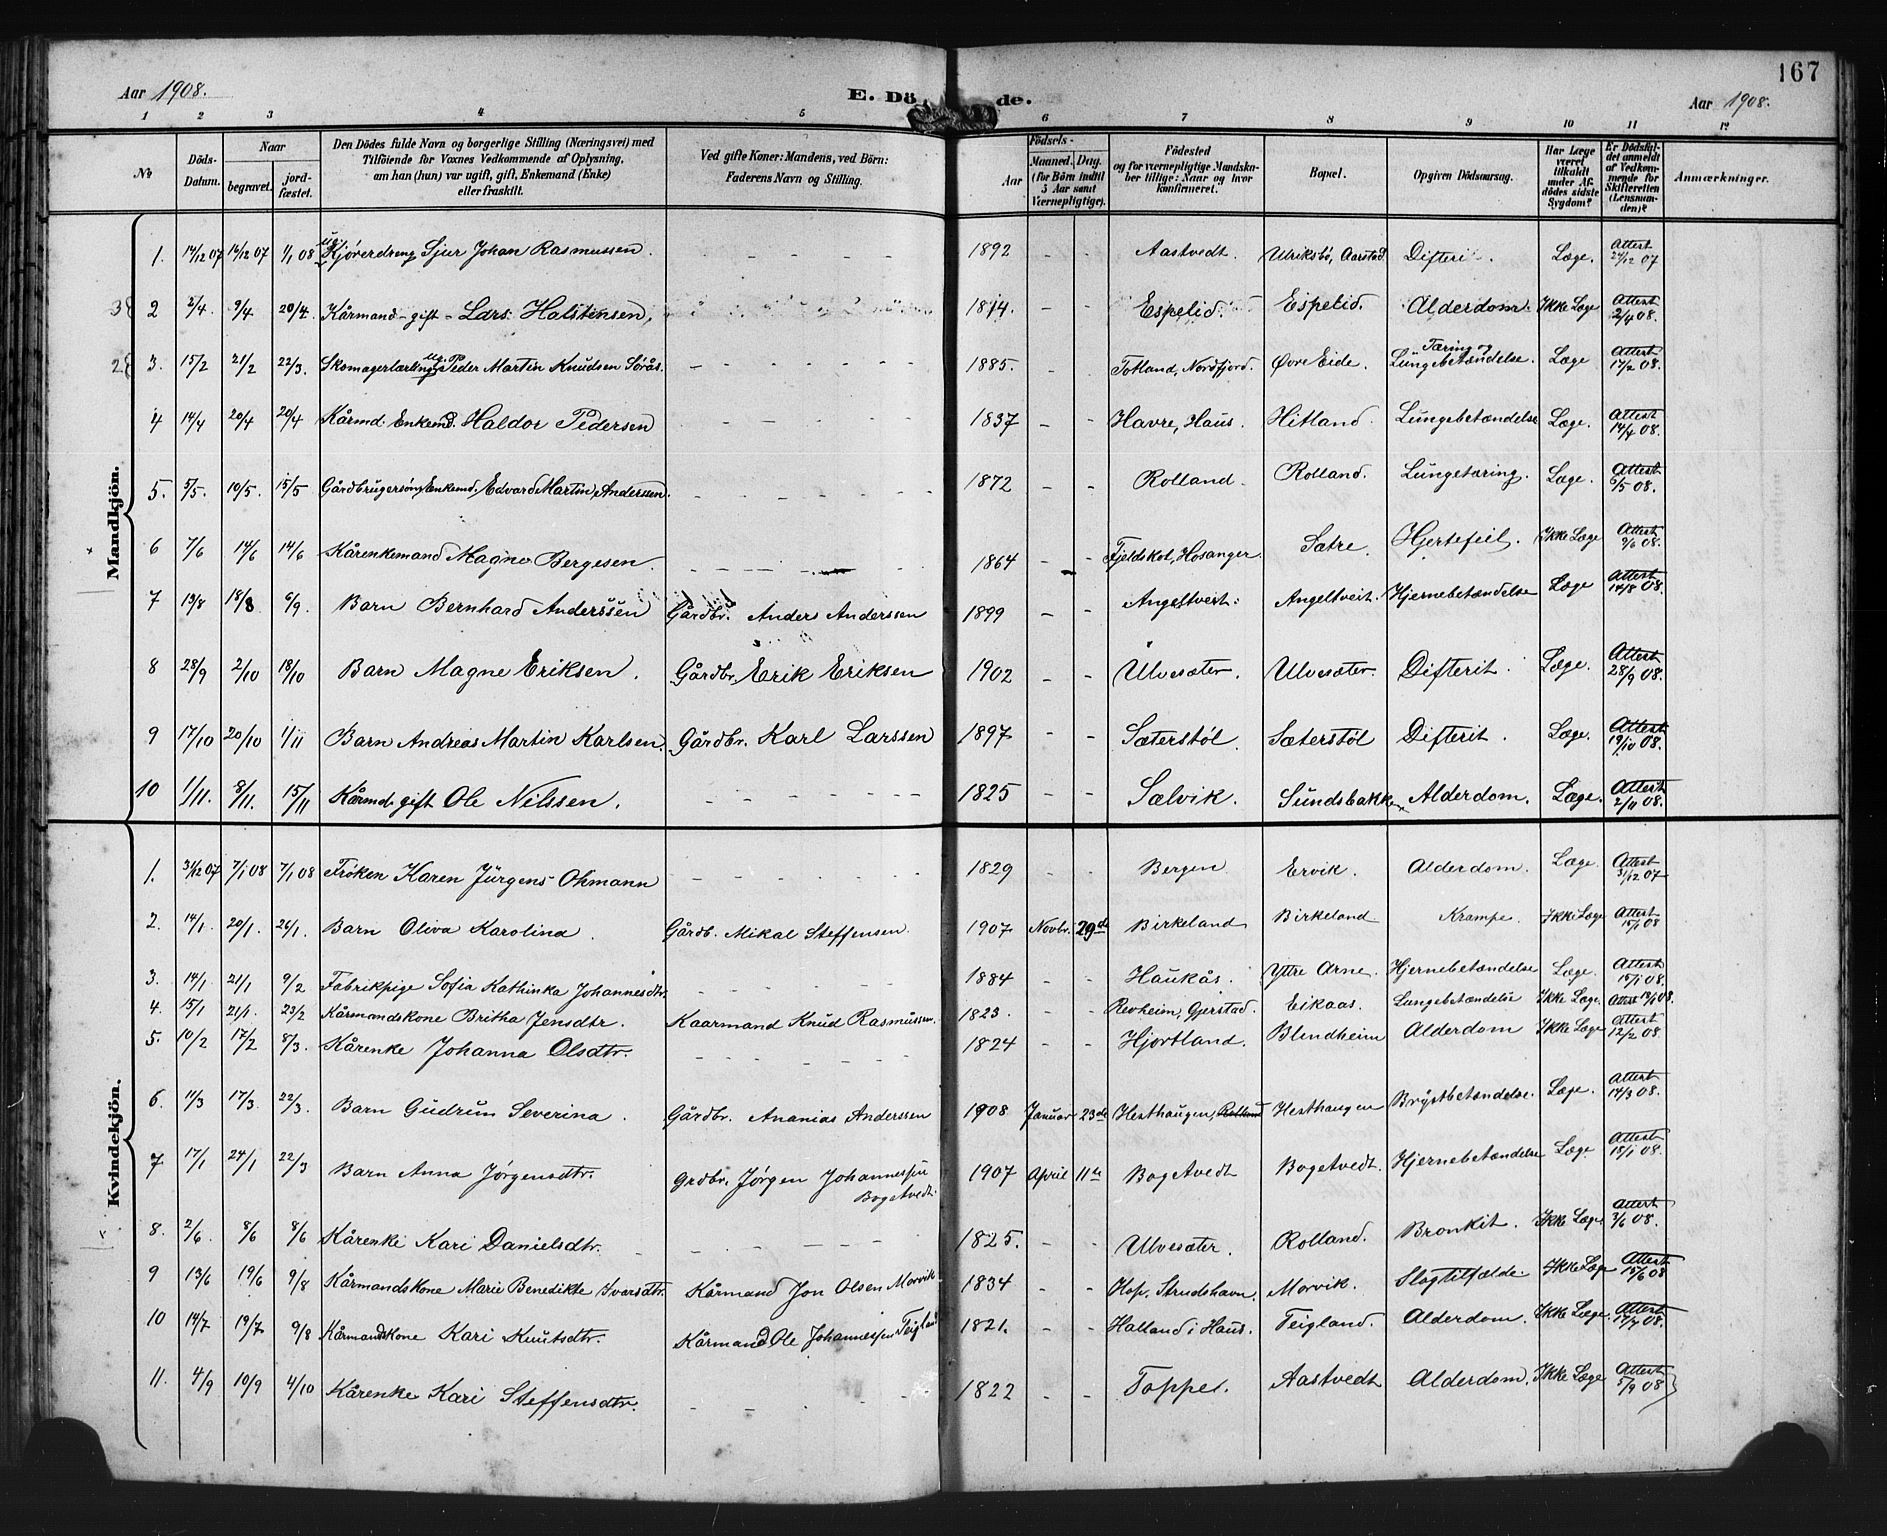 167
Aar 1908. E. Dö de. Aar 1908.
1 2 3 4 5 6 7 8 9 10 11 12
No Döds-Datum. Naar begravet. jord-fæstet. Den Dödes fulde Navn og borgerlige Stilling (Næringsvei) med Tilföiende for Voxnes Vedkommende af Oplysning, om han (hun) var ugift, gift, Enkemand (Enke) eller fraskilt. Ved gifte Koner: Mandens, ved Börn: Faderens Navn og Stilling. Födsels- Aar Maaned. Dag. (for Börn indtil 5 Aar samt Værnepligtige). Födested og for værnepligtige Mandska-ber tillige: Naar og hvor konfirmeret. Bopæl. Opgiven Dödsaarsag. Har Læge været tilkaldt under Af-dödes sidste Sygdom? Er Dödsfal-det anmeldt af Vedkom-mende for Skifteretten (Lensman-den)? Anmærkninger.
Mandkjön.
1. 14/12 07 14/12 07 1/1 08 ug. Kjörerdreng Sjur Johan Rasmussen. - - - - 1892 - - Aastvedt. Ulriksbö, Aarstad. Difteri. Læge. Attest 24/12 07
2 2/4. 9/4 20/4. Kårmand - gift - Lars Halstensen, 1814. - - Espelid. Espelid. Alderdom. Ikke Læge Attest 2/4 08.
3. 15/2 21/2 22/3. Skomagerlærling ug. Peder Martin Knudsen Sörås. - - - - 1885. - - Totland, Nordfjord. Øvre Eide. Tæring og Lungebetændelse. Læge Attest 17/2 08.
4 14/4 20/4 20/4 Kårmd. Enkemd. Haldor Pedersen - - - - 1837 - - Havre, Haus. Hitland. Lungebetændelse Læge. Attest 14/4 08.
5. 5/5. 10/5. 15/5 Gårdbrugersön, Enkemd, Edvard Martin Anderssen. - - - - 1872 - - Rolland. Rolland. Lungetæring. Læge. Attest 6/5 08.
6 7/6 14/6 14/6 Kårenkemand Magne Bergesen. - - - - 1864 - - Fjeldskot, Hosanger. Sætre. Hjertefeil. Ikke Læge Attest 9/6 08.
7 13/8 18/8 6/9. Barn Bernhard Anderssen Gårdbr. Anders Anderssen 1899 - - Angeltveit. Angeltveit. Hjernebetændelse Læge Attest 14/8 08.
8 28/9 2/10 18/10 Barn Magne Eriksen. Gårdbr. Erik Eriksen 1902 - - Ulvesæter. Ulvesæter. Difterit. Læge. Attest 28/9 08.
9 17/10 20/10 1/11 Barn Andreas Martin Karlsen. Gårdbr. Karl Larssen 1897 - - Sæterstöl. Sæterstöl Difterit. Læge. Attest 19/10 08.
10 1/11. 8/11. 15/11 Kårmd. gift Ole Nilssen. - - - - 1825 - - Sælvik. Sundsbakken Alderdom. Læge. Attest 2/11 08.
Kvindekjön.
1. 31/12 07 7/1 08 7/1 08 Fröken Karen Jürgens Ohmann - - - - 1829 - - Bergen Ervik. Alderdom. Læge. Attest 31/12 07
2. 14/1. 20/1. 26/1. Barn Oliva Karolina. Gårdb. Mikal Steffensen. 1907 Novbr. 29de Birkeland Birkeland. Krampe. Ikke Læge Attest 15/1 08
3. 14/1. 21/1 9/2 Fabrikpige Sofia Kathinka Johannesdtr. - - - - 1884 - - Haukås. Yttre Arne. Hjernebetændelse Læge. Attest 15/1 08.
4. 15/1 21/1. 23/2 Kårmandskone Britha Jensdtr. Kaarmand Knud Rasmussen. 1823. - - Revheim, Gjerstad. Eikaas. Lungebetændelse Ikke Læge. Attest 17/1 08.
5. 10/2 17/2 8/3. Kårenke Johanna Olsdtr. - - - - 1824 - - Hjortland. Blindheim Alderdom Ikke Læge Attest 12/2 08.
6. 11/3 17/3. 22/3. Barn Gudrun Severina. Gårdbr. Ananias Anderssen 1908 Januar 23de Hesthaugen, Rolland Hesthaugen Brystbetændelse. Læge. Attest 14/3 08.
7 17/1 24/1 22/3 Barn Anna Jörgensdtr. Grdbr. Jörgen Johannessen Bogetvedt. 1907 April 11te Bogetvedt Bogetvedt. Hjernebetændelse Læge Attest 18/1 08.
8. 2/6. 8/6 8/6 Kårenke Kari Danielsdtr. - - - - 1825. - - Ulvesæter. Rolland. Bronkit. Ikke Læge Attest 3/6 08.
9 13/6 19/6 9/8 Kårmandskone Marie Benedikte Ivarsdtr. Kårmand Jon Olsen Morvik. 1834 - - Hop, Strudshavn. Morvik. Slagtilfælde Ikke Læge Attest 15/6 08
10 14/7 19/7 9/8 Kårmandskone Kari Knutsdtr. Kårmand Ole Johannessen Teigland 1821. - - Halland i Haus. Teigland. Alderdom. Ikke Læge Attest 17/7 08.
11. 4/9 10/9 4/10 Kårenke Kari Steffensdtr. - - - - 1822 - - Toppe. Aastvedt Alderdom. Ikke Læge Attest 5/9 08